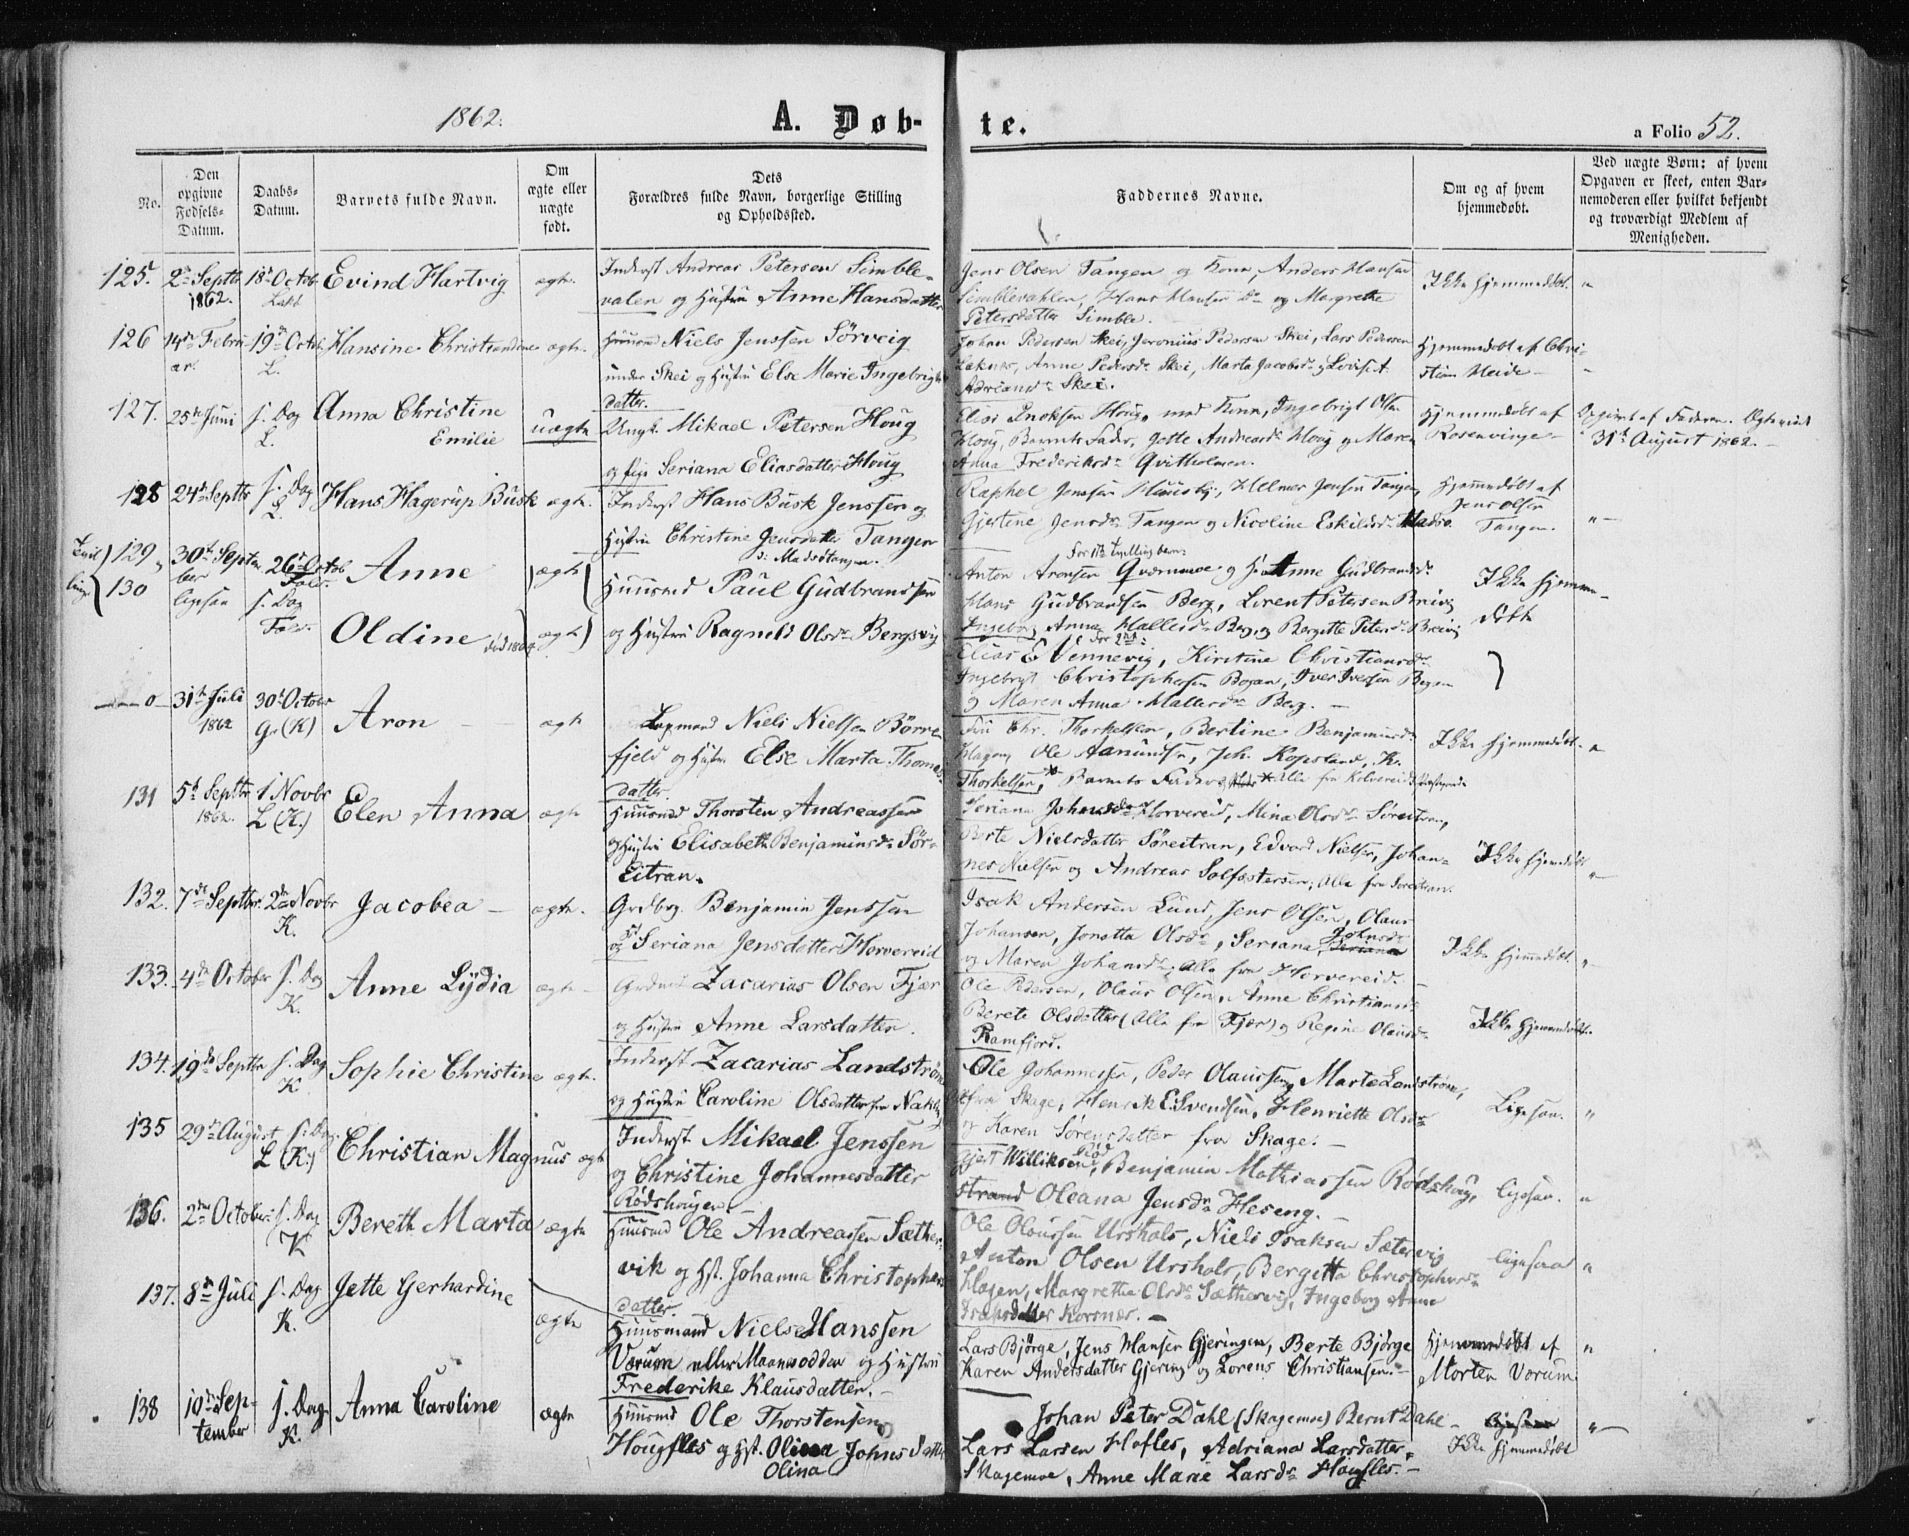 1862.
A. Døb-
te.
a Folio 52.
No.
Den opgivne Fødsels-Datum.
Daabs-Datum.
Barnets fulde Navn.
Om ægte eller nægte født.
Dets Forældres fulde Navn, borgerlige Stilling og Opholdssted.
Faddernes Navne.
Om og af hvem hjemmedøbt.
Ved nægte Børn: af hvem Opgaven er skeet, enten Barnemoderen eller hvilket bekjendt og troværdigt Medlem af Menigheden.
125. 2den Septbr 1862. 18de Octob. Evind Hartvig ægte.
Inderst Andreas Petersen Simble-
valen og Hustru Anne Hansdatter
Jens Olsen Tangen og Kone, Anders Hansen
Simblevahlen, Hans Hansen og Margrethe
Petersdatter Simble.
Ikke hjemmedøbt. "
126 14de Febru-ar. 19de Octob. L. Hansine Christiandine ægte.
Huusmd Niels Jenssen Sörveig
under Skei og Hustru Else Marie Ingebrigts
datter.
Johan Pedersen Skei, Jeronius Pedersen Skei, Lars Pedersen
Anne Pedersdr Skei, Marta Jacobsdr
Skei.
Hjemmedøbt af Chri-
stian Heide
127. 25de Juni s. Dag L. Anna Christine
Emilie uægte
Ungk. Mikael Petersen Houg
og Pige Seriana Eliasdatter Houg
Elias Enoksen Houg, med Kone, Ingebrigt Olsen
Houg, Barnets Fader, Jette Andreasdr Houg og Maren
Anna Frederiksdr Qvitholmen.
Hjemmedøbt af
Rosenvinge
Opgivet af Faderen.
31te August 1862.
128 24de Septbr s. Dag L. Hans Hagerup Busk ægte.
Inderst Hans Busk Jenssen og
Hustru Christine Jensdatter Tangen
Madsøtangen.
Raphel Jenssen Hilmer Jensen Tangen
Gjertine Jensdr Tangen og Nicoline Eskildsdr Madsø.
Hjemmedøbt af
Jens Olsen
Tangen. "
Tvil-
linge
129 30te Septem
ber 26de Octob. Anne ægte
130 ligesaa s. Dag Oldine død 1864 ægte
Huusmd Paul Gudbrandsen
og Hustru Ragnild Olsdr Bergsvig
For 1ste Tvillingbarn:
Anton Aronsen Qværnmoe og Anne Gudbrandsdr
Hans Gudbrandsen Berg, Lorent Petersen Breivig
Ingeborg Anna Hallesdr Berg, og Bergitte Petersdr Breivig
For 2det:
Elias E Vennevig, Kirstine Christiansdr
Ingebrigt Christophersen Bogan, Iver Iversen Bogan
og Maren Anna Hallesdr Berg.
Ikke hjemme-
døbt
0 31te Juli 1862 30te Octobr Gr. (K) Aron ægte
Niels Nielsen Börne-
fjeld og Hustru Else Marta Thomas-
datter.
Chr. Thorkelsen, Bertine Benjaminsdr
Hagen, Ole Aamundsen, Joh. Kopsland, K.
Thorkelsen, Barnets Fader, alle fra Kolvereid
Ikke hjemmedøbt. "
131 5te Septbr 1862. 1 Novbr L (K.) Elen Anna ægte
Huusmd Thorsten Andreassen
og Hustru Elisabeth Benjaminsdr Sör-
Eitran.
Seriana Johnsdr Horvereid, Mina Olsdr Söreitran,
Berte Nielsdatter Söreitran, Edvard Nielsen, Johan-
nes Nielsen og Andreas; Alle fra Söreitran.
Ikke hjemmedøbt "
132. 7de Septbr. 2den Novbr K. Jacobea ægte.
Grdbr. Benjamin Jenssen
og Seriana Jensdatter Horvereid
Isak Andersen Lund, Jens Olsen, Olaus
Johansen, Jonetta Olsdr, Seriana Johnsdr
og Maren Johansdr; Alle fra Horvereid.
Ikke hjemmedøbt. "
133. 4de October s. Dag K. Anne Lydia ægte
Zacarias Olsen Fjær
og Hustru Anne Larsdatter.
Ole Pedersen, Olaus Olsen, Anne Christiansdr
Berete Olsdatter (Alle fra Fjær) og Regine Olausdr
Ramfjord.
Ikke hjemmedøbt.
134. 19de Septbr s. Dag K. Sophie Christine ægte.
Inderst Zacarias Landström
og Hustru Caroline Olsdatter fra
Ole Johannessen, Peder Olaussen, Marte Landström,
fra Skage, Henrik E. Svendsen, Henriette Olsdr
og Karen Sörensdatter fra Skage.
Ligesaa. "
135 29de August s. Dag L (K.) Christian Magnus ægte
Inderst Mikael Jenssen
og Christine Johannesdatter
Rödshougen.
Gjert Williksen, Benjamin Mathiassen Rödshoug,
Oleana Jensdr Heseng.
ligesaa. "
136. 2den October s. Dag K Bereth Marta ægte
Huusmd Ole Andreassen Sæther-
vik og Hst. Johanna Christophers-
datter.
Ole Olaussen Urshols, Niels Isaksen Sætervig
Anton Olsen Urshols, Bergitta Christophersdr
Hagen, Margretha Olsdr Sæthervig, Ingeborg Anne
Isaksdatter Korsnær.
ligesaa "
137. 8de Juli s. Dag K. Jette Gerhardine ægte
Huusmand Niels Hanssen
Vorum eller Maanesodden og Hustru
Frederike Klausdatter.
Lars Bjørge, Jens Hansen Gjeringen, Berte Bjørge
Karen Andersdatter Gjering og Lorens Christiansen.
Hjemmedøbt af
Morten Vorum "
138 10de Sep-
tember s. Dag K. Anna Caroline ægte
Huusmd Ole Thorstensen
Hougfles og Hst. Olina Johnsdatter
Olina
Johan Peter Dahl (Skagemoe) Bernt Dahl
Lars Larsen Hofles, Adriana Larsdatter
Skagemoe, Anne Marie Larsdr Hougfles.
Ikke hjemmedøbt "